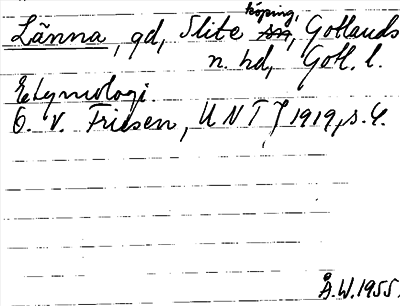 Länna, gd, Slite köping, Gotlands
n. hd, Gotl. l.
Etymologi.
O. v. Friesen, UNT J 1919, s. 4.
Å.W. 1955.